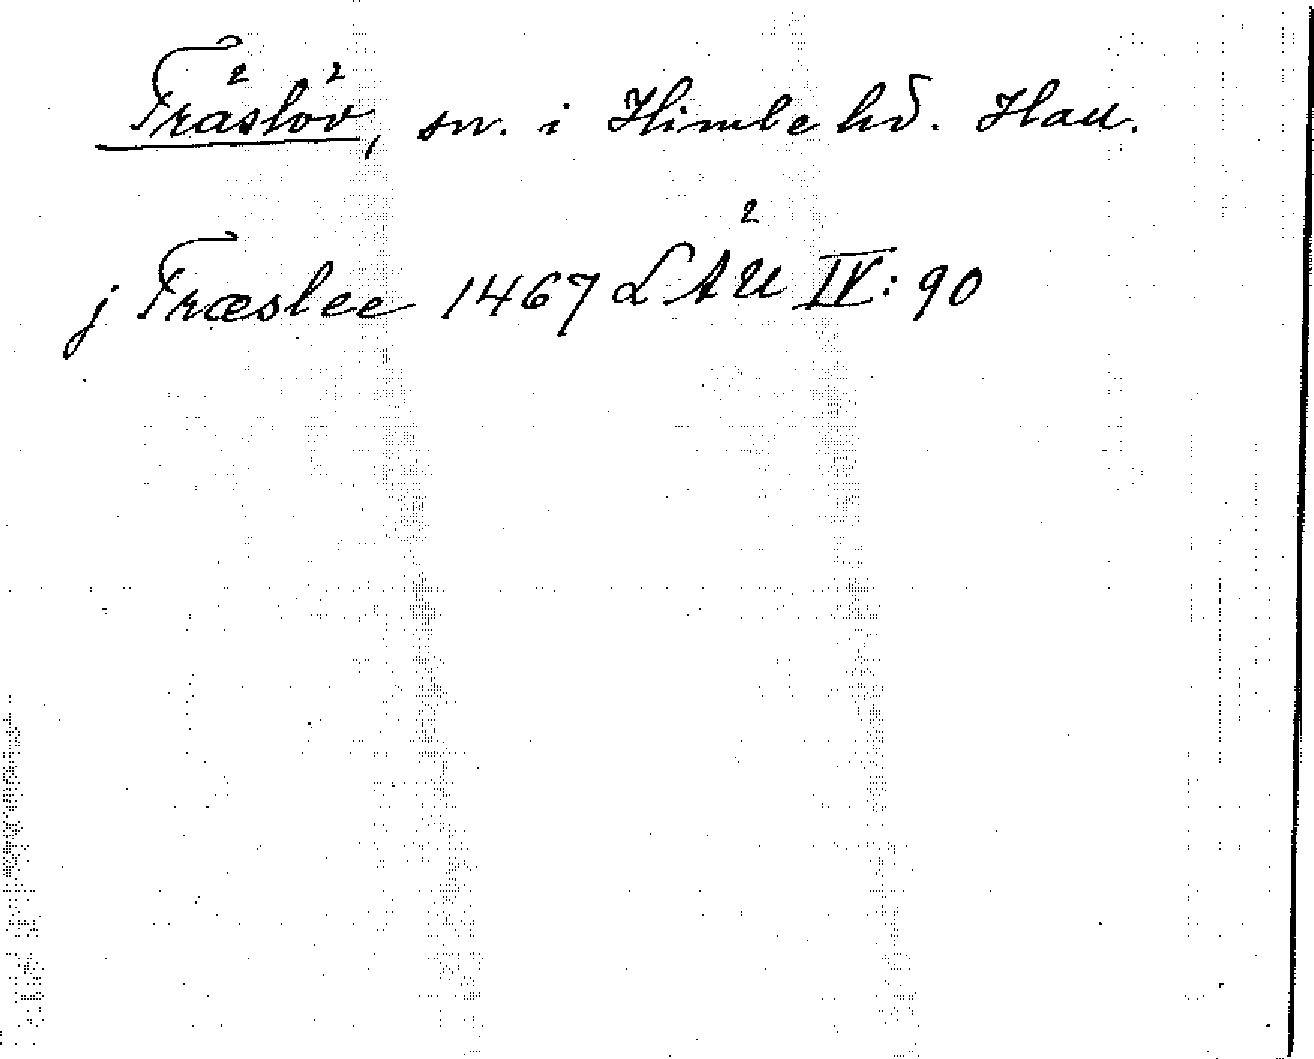 Träslöv, sn. i Himle hd. Hall.
j Træslee 1467 LÄU IV: 90